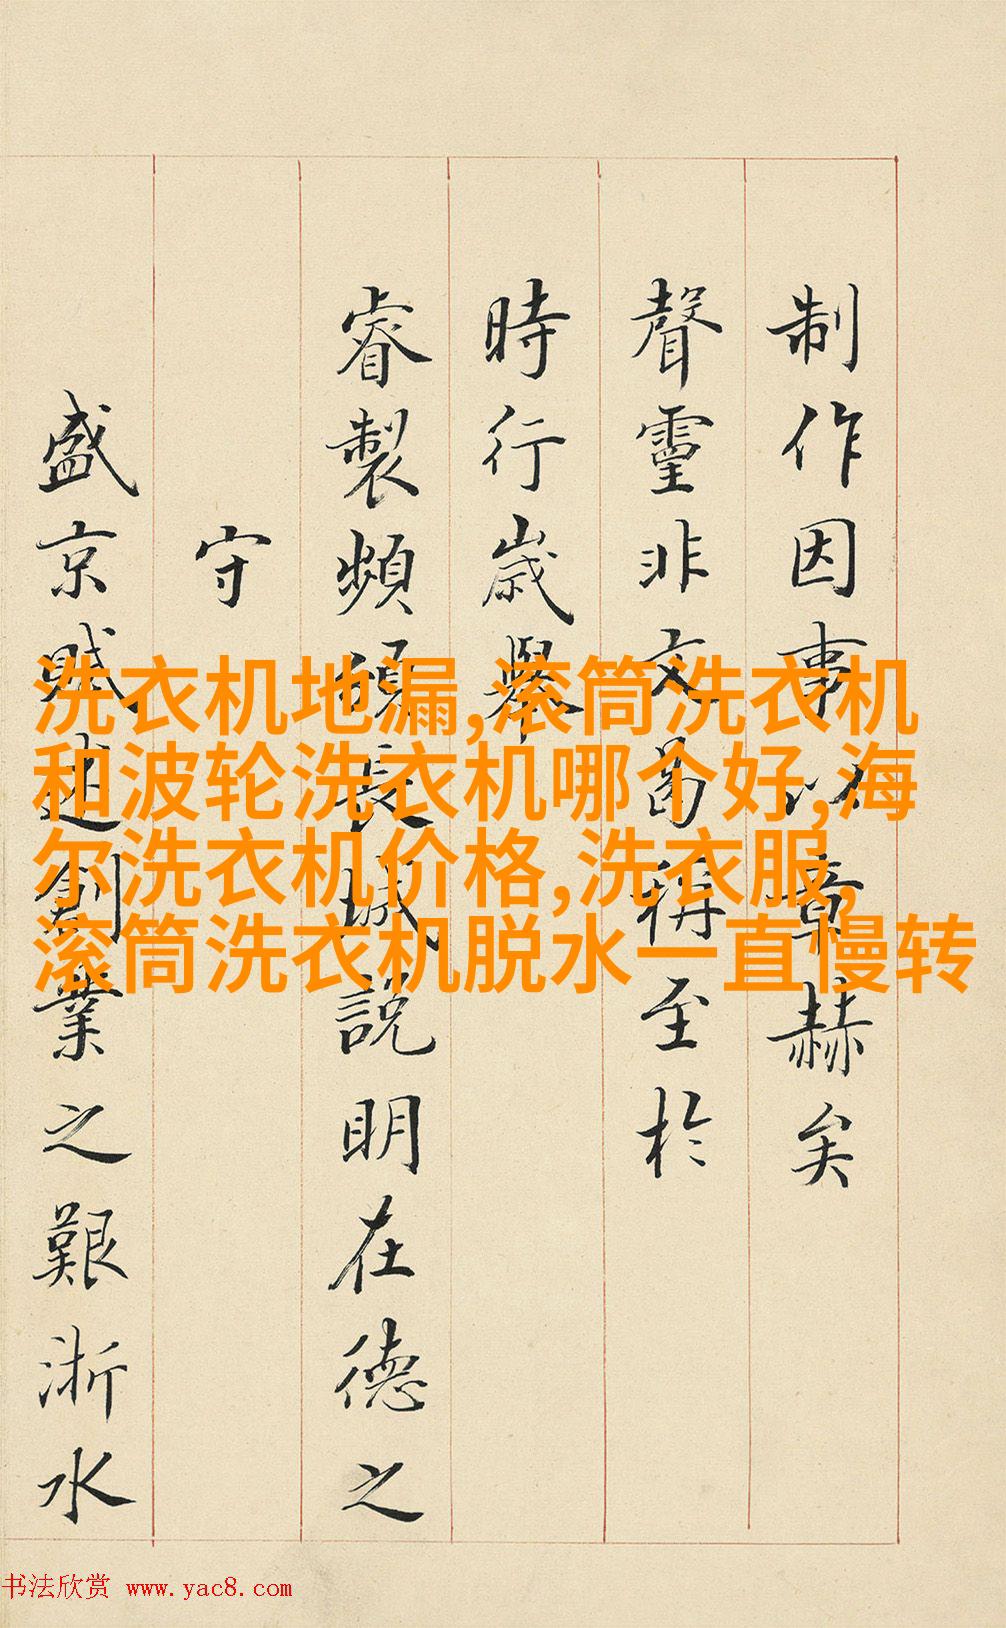 制作因事以章赫矣
聲靈非文曷稱至於
時行歲舉
睿製頻頒長城說明在德之
守
盛京賦述創業之艱浙水
洗衣机地漏,滚筒洗衣机
和波轮洗衣机哪个好,海
尔洗衣机价格,洗衣服,
滚筒洗衣机脱水一直慢转
书法欣赏 www.yac8.com